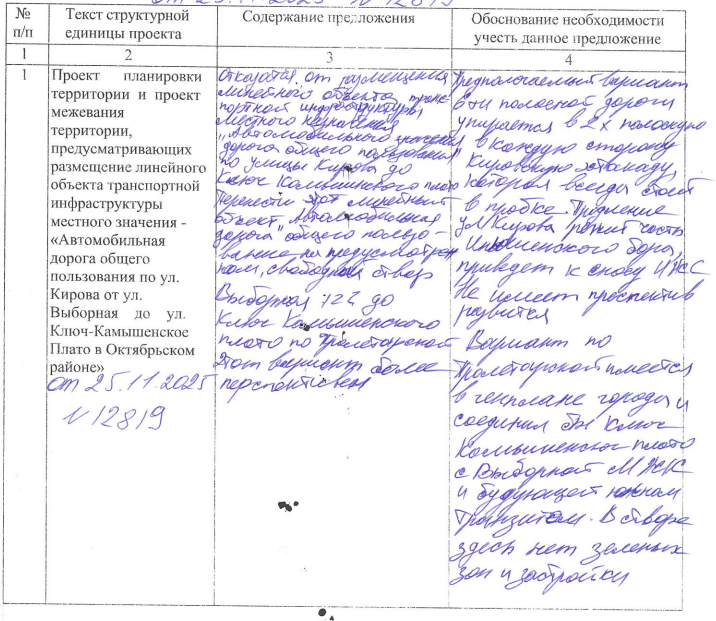 от 25.11.2025 N 12819
№ п/п
Текст структурной единицы проекта
Содержание предложения
Обоснование необходимости учесть данное предложение
1
2
3
4
1
Проект планировки
территории и проект
межевания
территории,
предусматривающих
размещение линейного
объекта транспортной
инфраструктуры
местного значения -
«Автомобильная
дорога общего
пользования по ул.
Кирова от ул.
Выборная до ул.
Ключ-Камышенское
Плато в Октябрьском
районе»
от 25.11.2025
N 12819
Отказатся от размещения
линейного объекта, транс-
портной инфраструктуры
местного значения
"Автомобильного значения
дорога общего пользования"
по улицы Кирова до
Ключ Камышенского плато
Перенести этот линейный
объект "Автомобильная
дорога" общего пользо-
вание на предусмотрен
ном, свободном створ
Выборная 122 до
Ключ Камышенского
плато по Пролетарской
Этот вариант более
перспективен
Предпологаемый вариант
6 ти полосной дороги
упирается в 2х полосную
в каждую сторону
Кировскую эстакаду,
которая всегда стоит
в пробке. Продление
ул Кирова режит часть
Инюшенского бора,
приведет к сносу ИЖС
Не имеет проспектив
развития
Вариант по
Пролетарской имеется
в генплане города и
соединил бы Ключ
Камышенское плато
с Выборной МЖК
и будующей южном
транзитом. В створе
здесь нет зеленых
зон и застройки